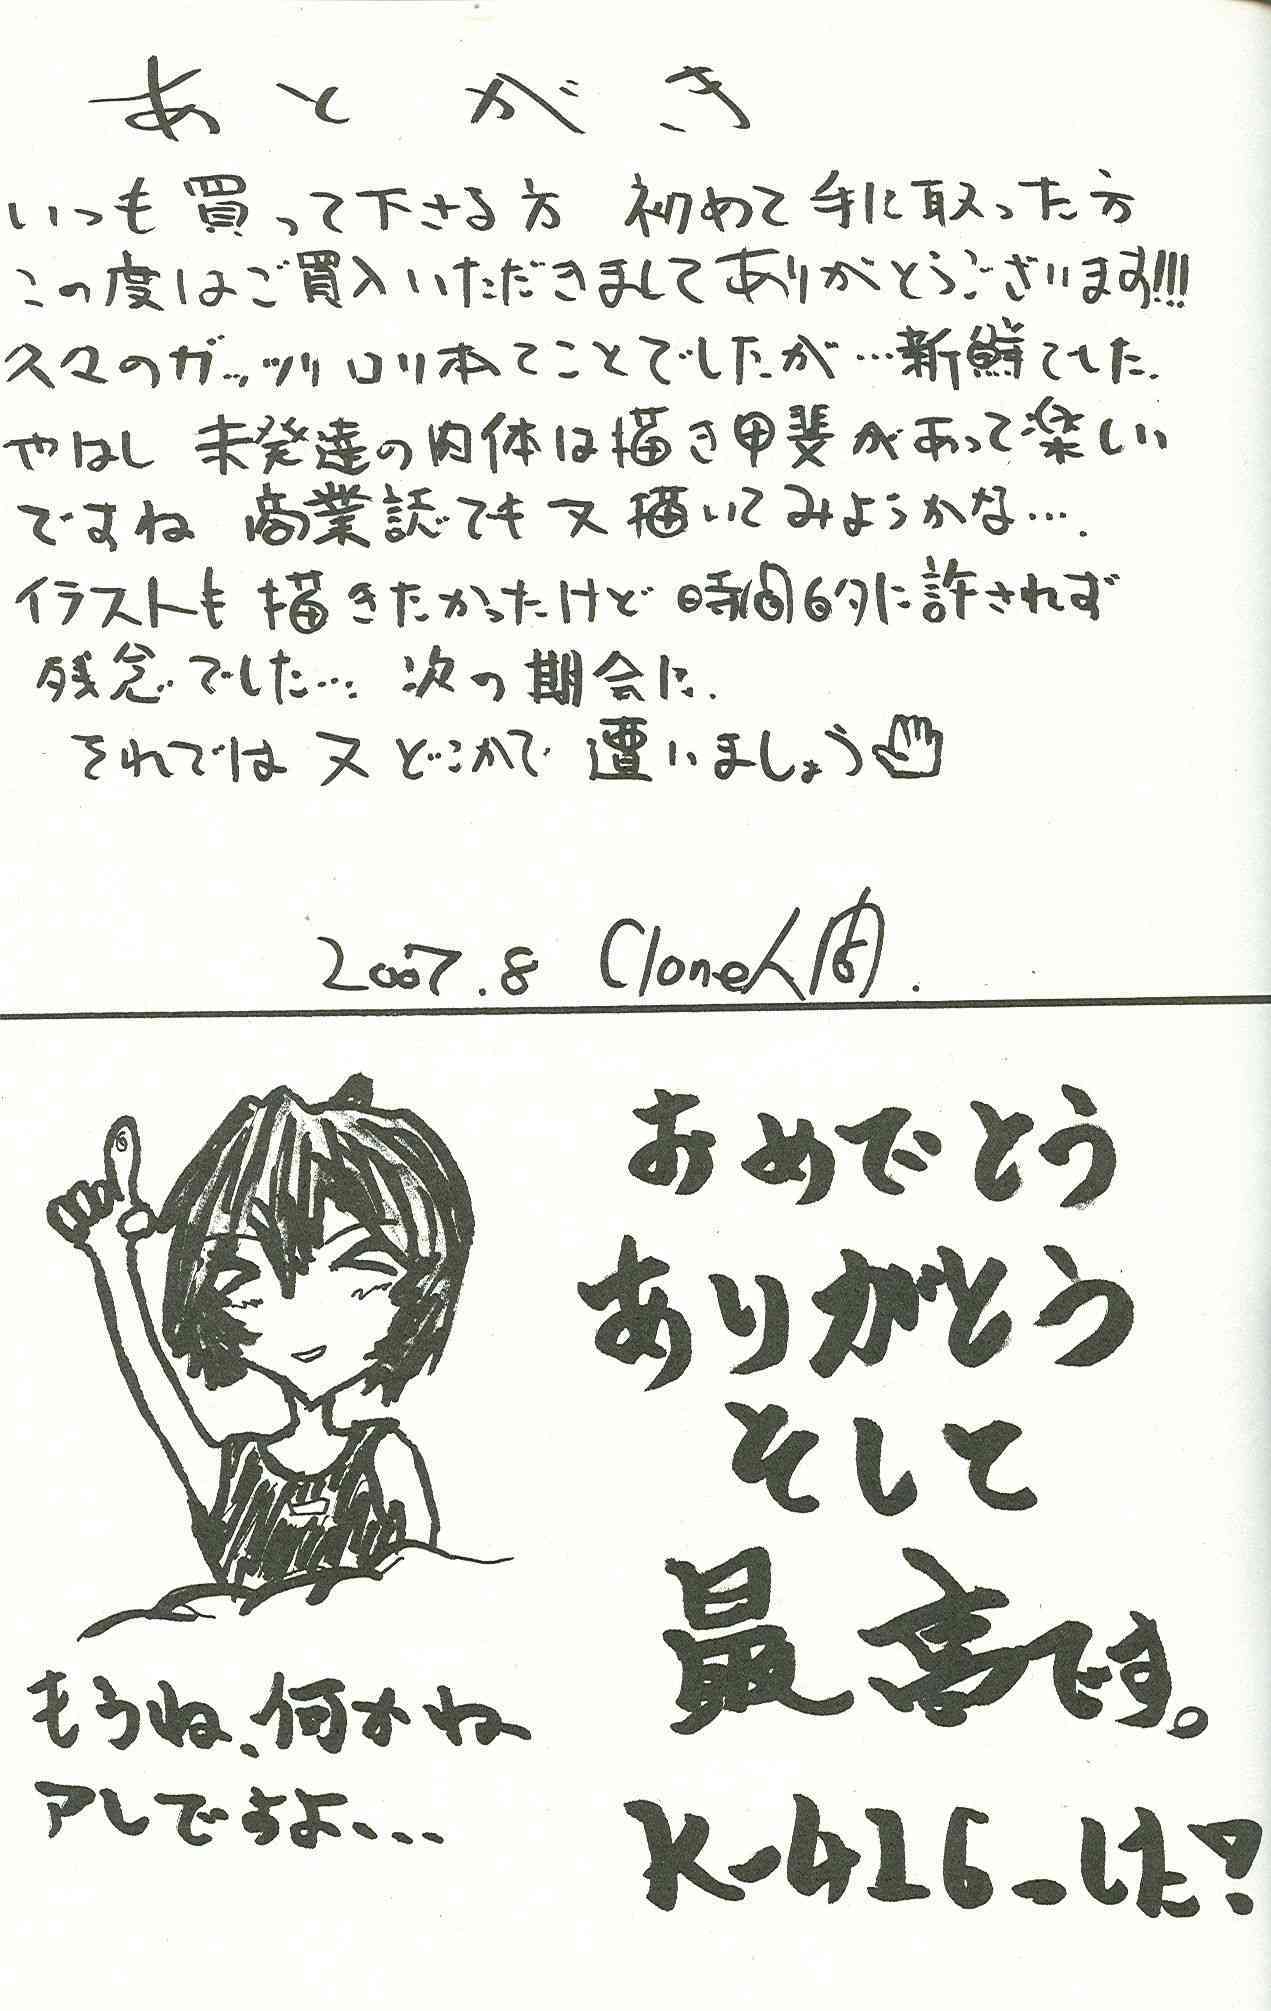 あとがき
いつも買って下さる方 初めて手に取った方
この度はご買入いただきましてありがとうございます!!!
久々のガッツリロリ本てことでしたが…新鮮でした.
やはし 未発達の肉体は描き甲斐があって楽しい
ですね 商業誌でも又描いてみようかな….
イラストも描きたかったけど時間的に許されず
残念でした… 次の期会に.
それでは又どこかで遭いましょう
2007.8 Clone人間.
おめでとう
ありがとう
そして
最高です。
K-416っした!
もうね、何かね
アレですよ、、、